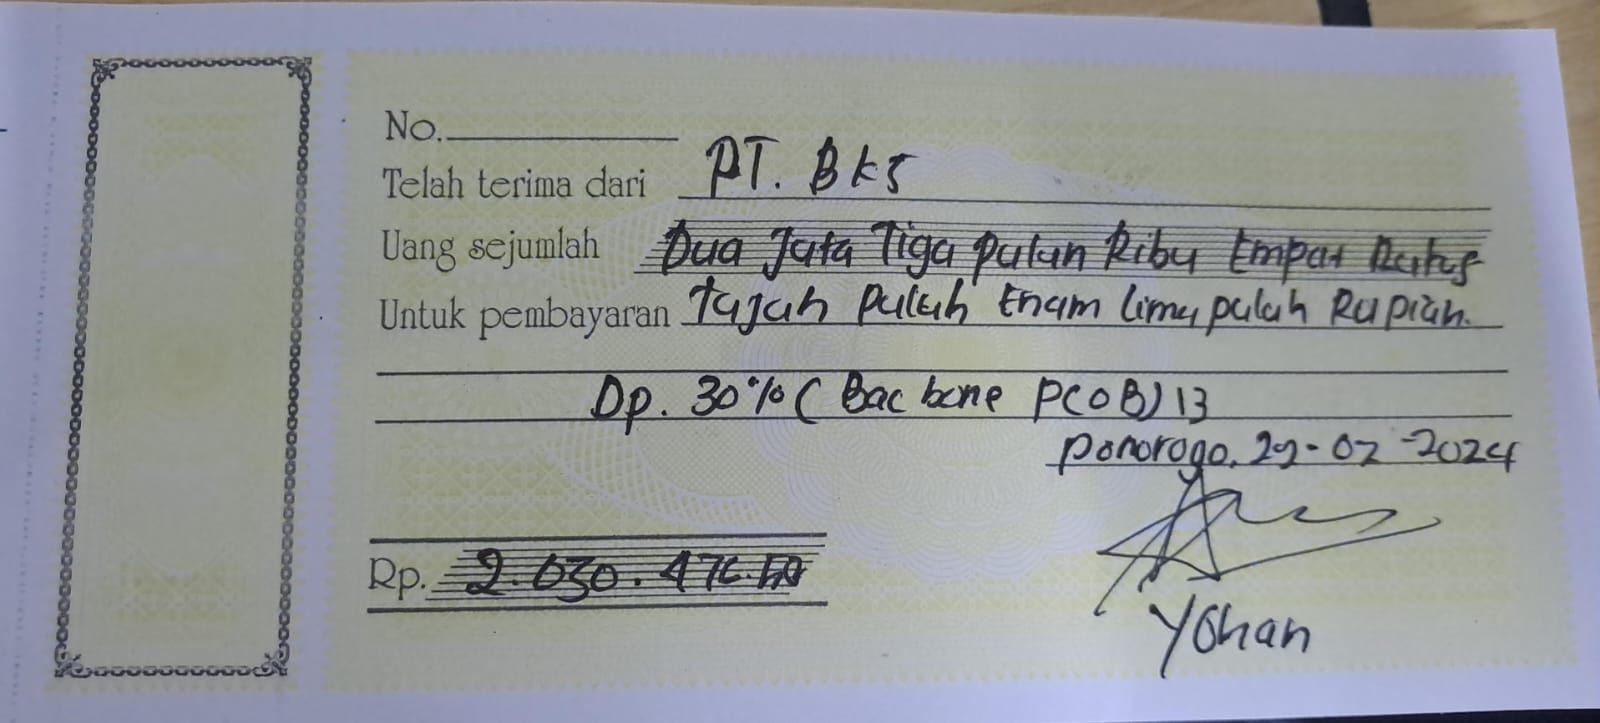 No.
Telah terima dari PT. BKS
Uang sejumlah Dua Juta Tiga puluh Ribu Empat Ratus
Untuk pembayaran Tujuh puluh Enam lima puluh Rupiah.
Dp. 30% ( Bac bone PCOB) 13
Ponorogo, 29-02-2024
Rp. 2.030.476.50
Yohan